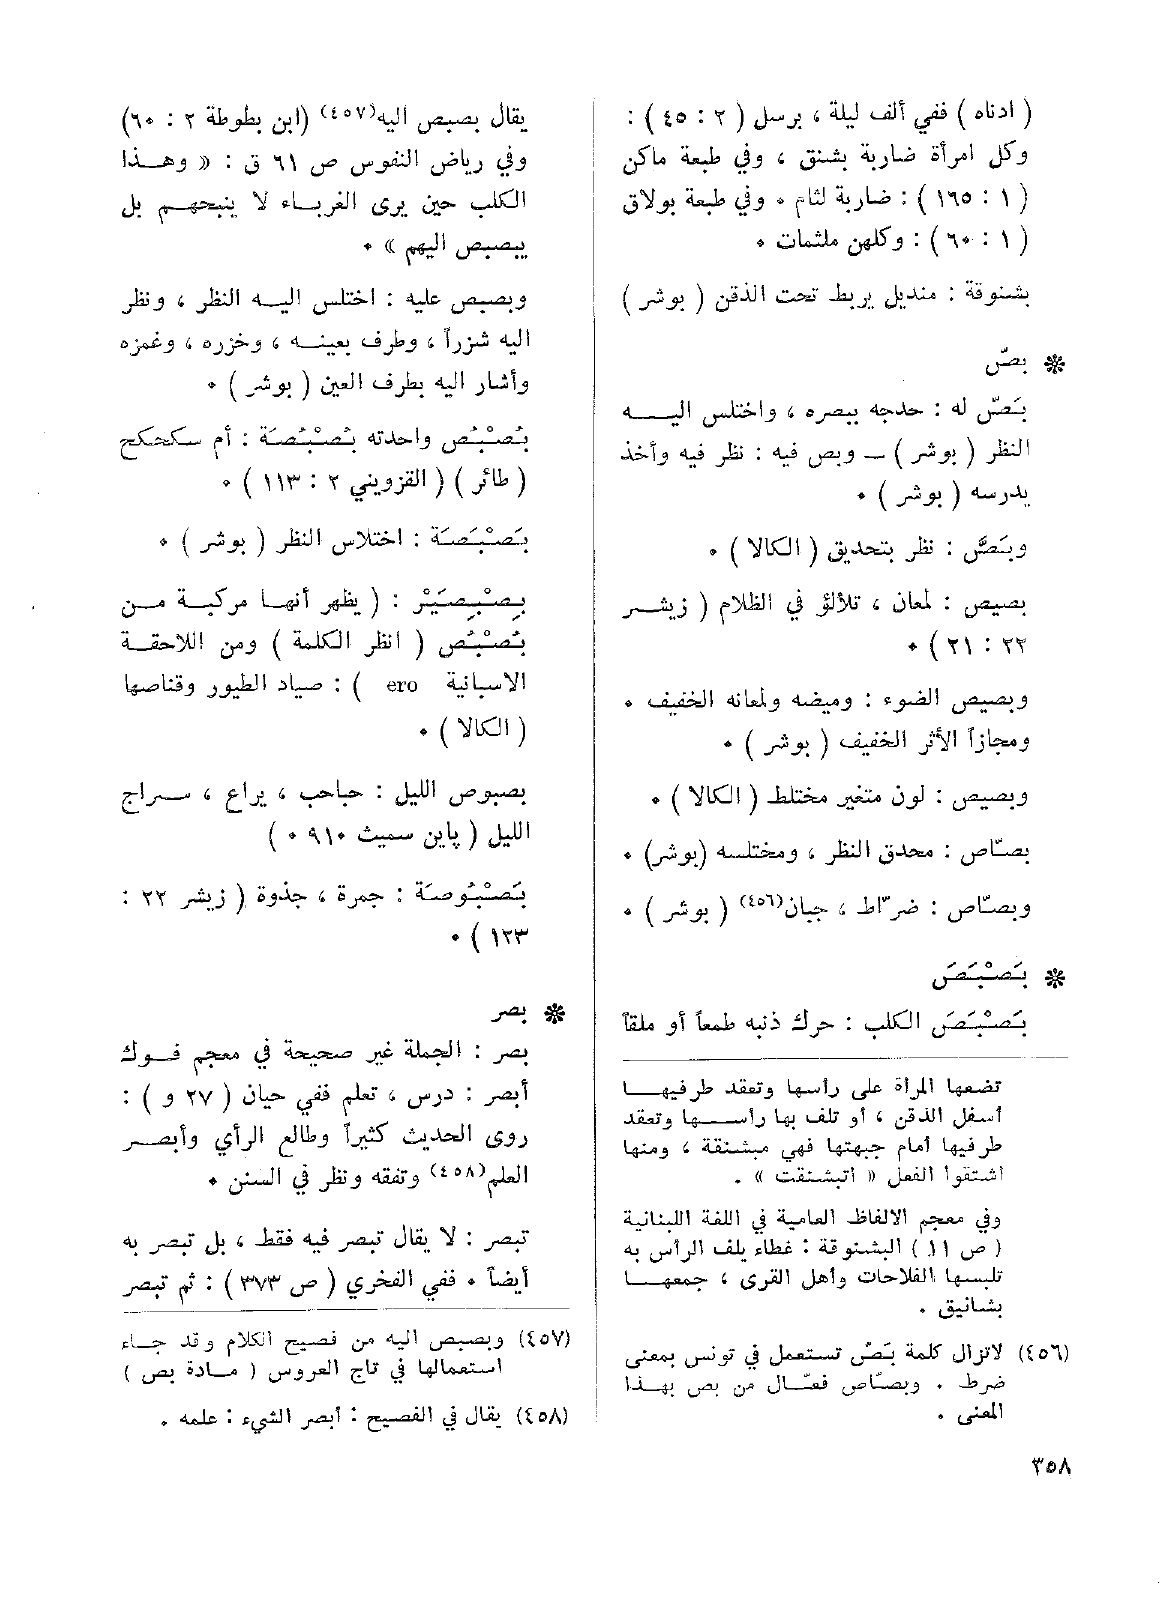 ( ادناه ) ففي ألف ليلة ، برسل ( ٢ : ٤٥ ) :
وكل امرأة ضاربة بشنق ، وفي طبعة ماكن
( ١ : ١٦٥ ) : ضاربة لثام ٠ وفي طبعة بولاق
( ١ : ٦٠ ) : وكلهن ملثمات ٠
بشنوقة : منديل يربط تحت الذقن ( بوشر )
❋ بصّ
بَصّ له : حدجه ببصره ، واختلس اليه
النظر ( بوشر ) ــ وبص فيه : نظر فيه وأخذ
يدرسه ( بوشر ) ٠
وبَصَّ : نظر بتحديق ( الكالا ) ٠
بصيص : لمعان ، تلألؤ في الظلام ( زيشر
٢٢ : ٢١ ) ٠
وبصيص الضوء : وميضه ولمعانه الخفيف ٠
ومجازاً الأثر الخفيف ( بوشر ) ٠
وبصيص : لون متغير مختلط ( الكالا ) ٠
بصّاص : محدق النظر ، ومختلسه (بوشر) ٠
وبصّاص : ضرّاط ، جبان(٤٥٦) ( بوشر ) ٠
❋ بَصْبَصَ
بَصْبَصَ الكلب : حرك ذنبه طمعاً أو ملقاً
تضعها المرأة على رأسها وتعقد طرفيها
أسفل الذقن ، أو تلف بها رأسها وتعقد
طرفيها أمام جبهتها فهي مبشنقة ، ومنها
اشتقوا الفعل « اتبشنقت » .
وفي معجم الالفاظ العامية في اللغة اللبنانية
( ص ١١ ) البشنوقة : غطاء يلف الرأس به
تلبسها الفلاحات وأهل القرى ، جمعها
بشانيق .
(٤٥٦) لاتزال كلمة بَصّ تستعمل في تونس بمعنى
ضرط . وبصّاص فعّال من بص بهذا
المعنى .
يقال بصبص اليه(٤٥٧) (ابن بطوطة ٢ : ٦٠)
وفي رياض النفوس ص ٦١ ق : « وهذا
الكلب حين يرى الغرباء لا ينبحهم بل
يبصبص اليهم » ٠
وبصبص عليه : اختلس اليه النظر ، ونظر
اليه شزراً ، وطرف بعينه ، وخزره ، وغمزه
وأشار اليه بطرف العين ( بوشر ) ٠
بُصْبُص واحدته بُصْبُصَة : أم سكحكح
( طائر ) ( القزويني ٢ : ١١٣ ) ٠
بَصْبَصَة : اختلاس النظر ( بوشر ) ٠
بِصْبِصَيْر : ( يظهر أنها مركبة من
بُصْبُص ( انظر الكلمة ) ومن اللاحقة
الاسبانية ero ) : صياد الطيور وقناصها
( الكالا ) ٠
بصبوص الليل : حباحب ، يراع ، سراج
الليل ( پاين سميث ٩١٠ ٠ )
بَصْبُوصَة : جمرة ، جذوة ( زيشر ٢٢ :
١٢٣ ) ٠
❋ بصر
بصر : الجملة غير صحيحة في معجم فوك
أبصر : درس ، تعلم ففي حيان ( ٢٧ و ) :
روى الحديث كثيراً وطالع الرأي وأبصر
العلم(٤٥٨) وتفقه ونظر في السنن ٠
تبصر : لا يقال تبصر فيه فقط ، بل تبصر به
أيضاً ٠ ففي الفخري ( ص ٣٧٣ ) : ثم تبصر
(٤٥٧) وبصبص اليه من فصيح الكلام وقد جاء
استعمالها في تاج العروس ( مادة بص )
(٤٥٨) يقال في الفصيح : أبصر الشيء : علمه .
٣٥٨